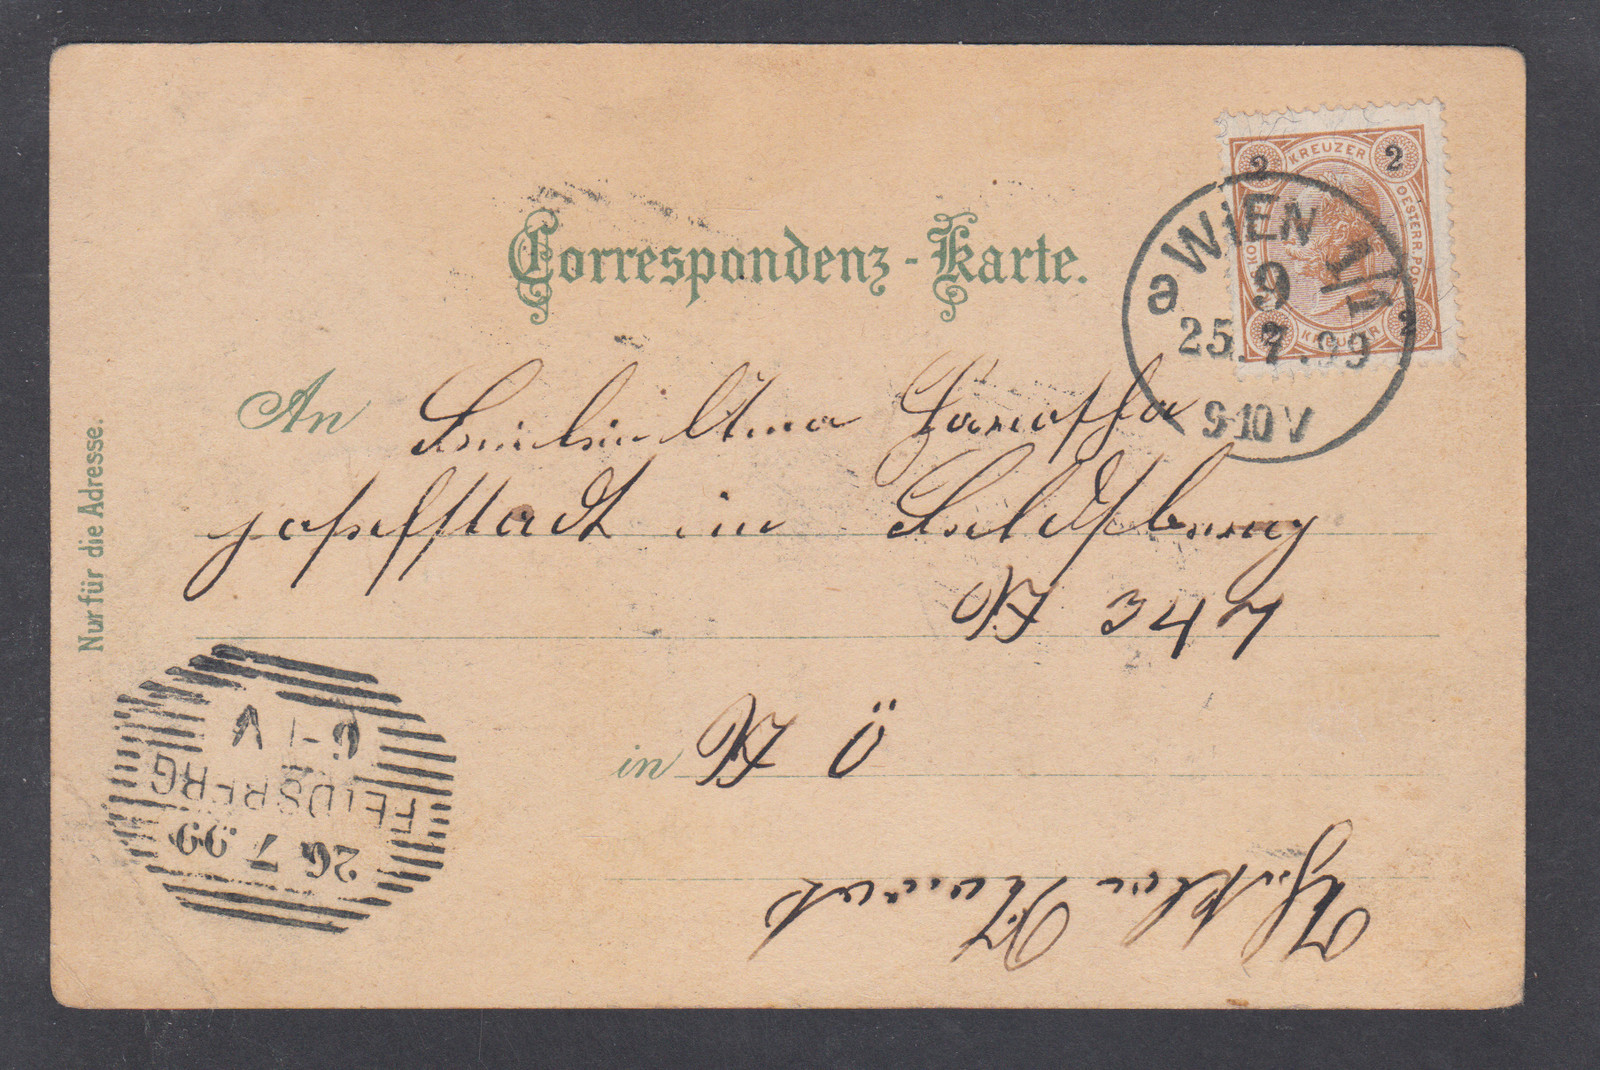 Correspondenz-Karte.
2 KREUZER 2
OESTERR. POST
2 KREUZER 2
WIEN 1/1
9
25.7.99
9-10V
An
Josefstadt in Feldsberg
N 347
in N Ö
Nur für die Adresse.
FELDSBERG
26 7 99
6-1 V